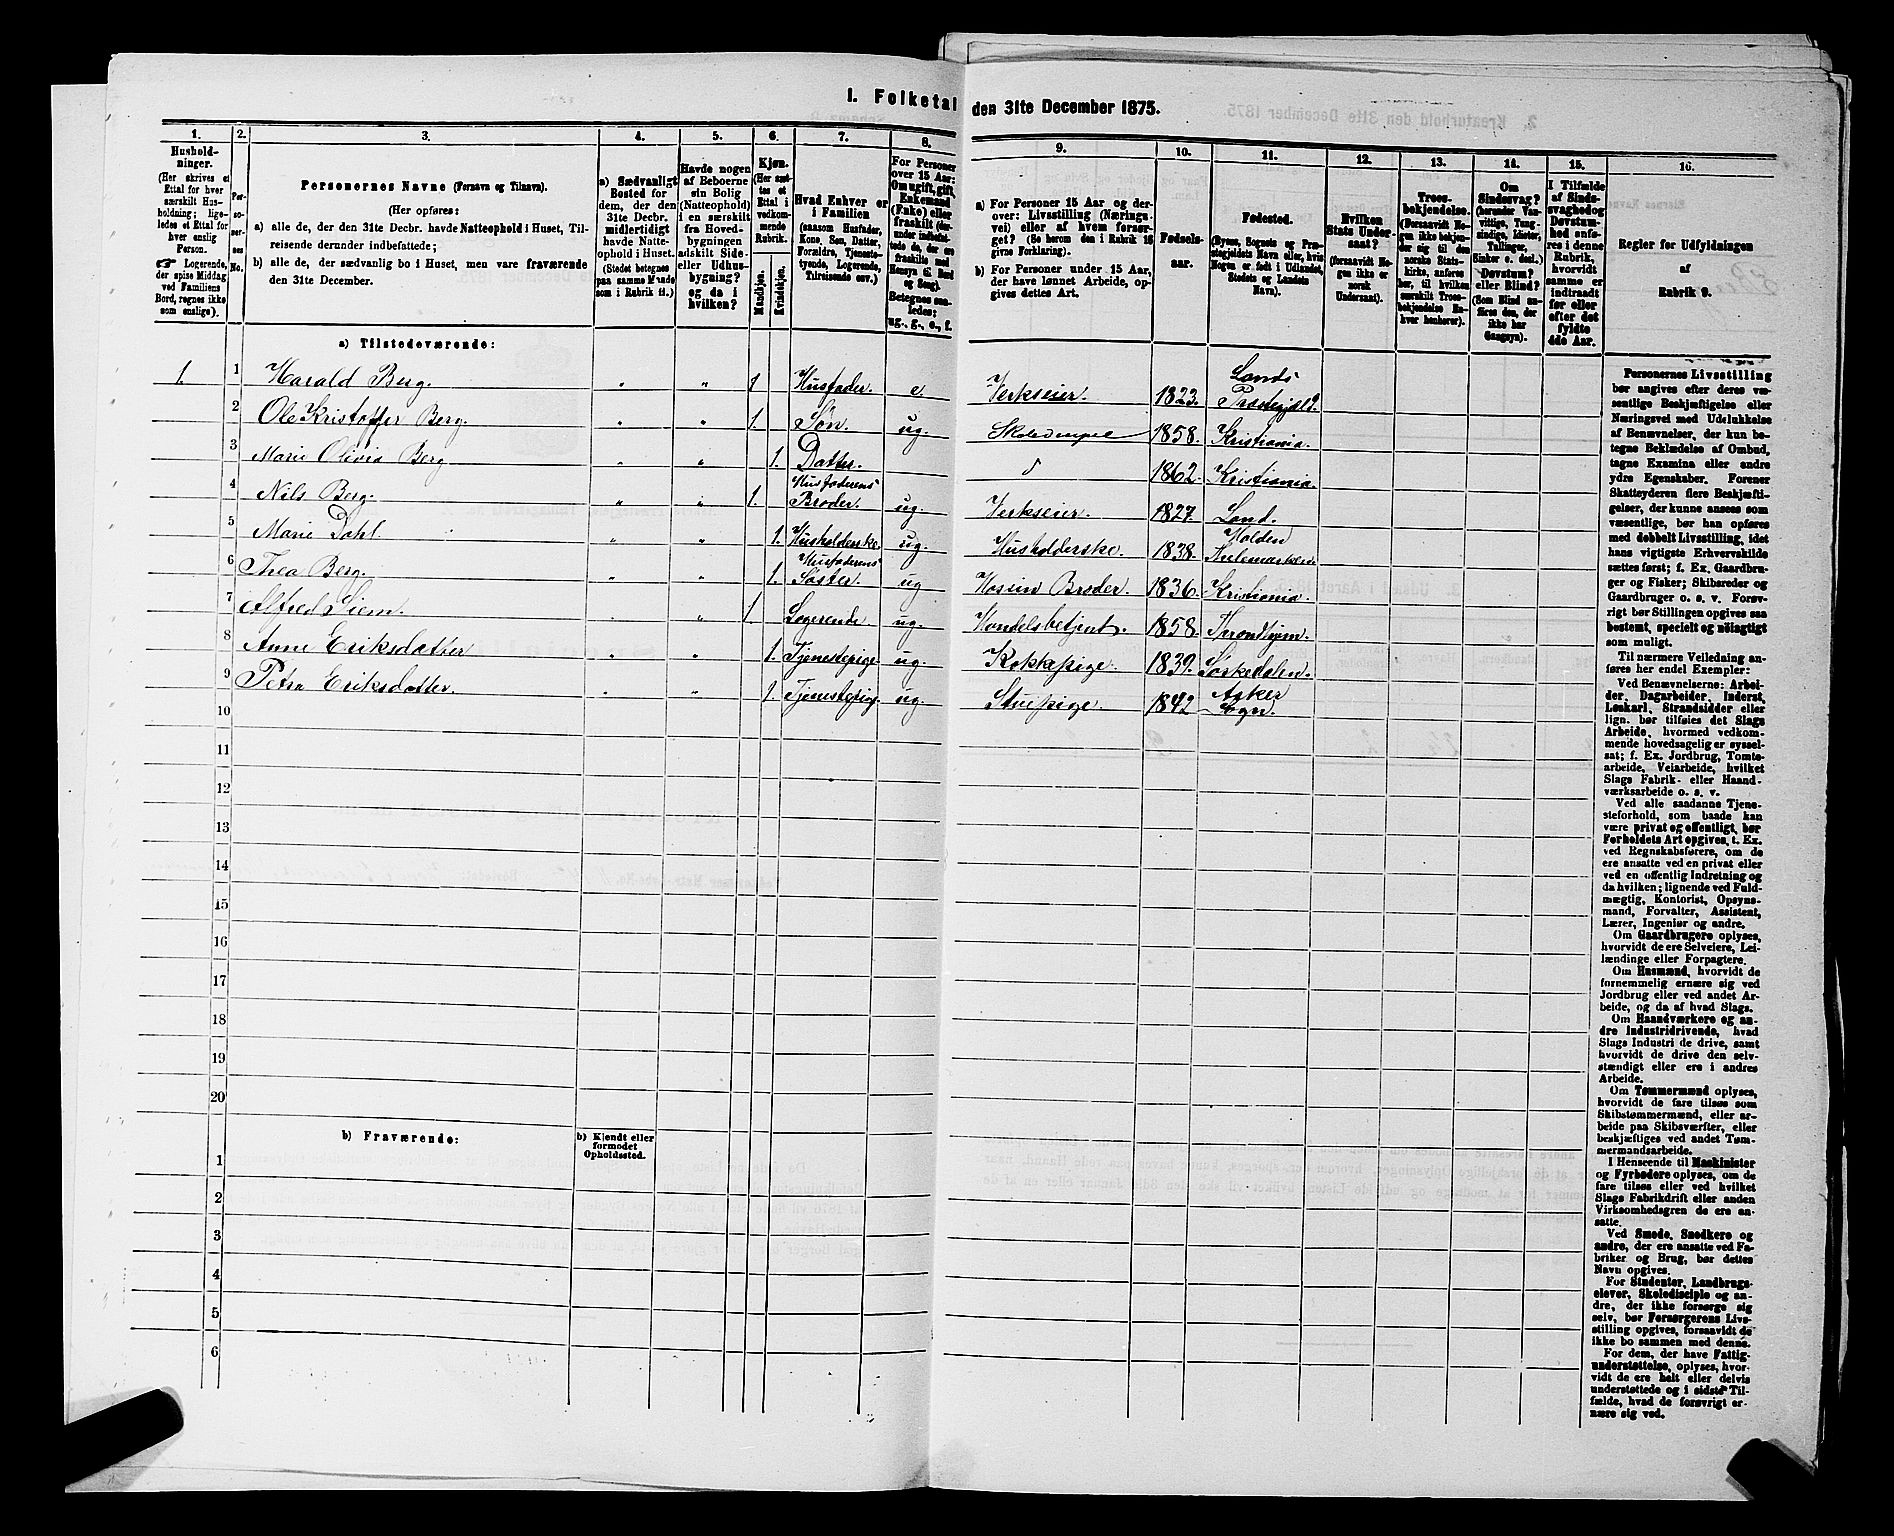 1. Folketal den 31te December 1875.
1.
Hushold-
ninger.
(Her skrives et
Ettal for hver
særskilt Hus-
holdning; lige-
ledes et Ettal for
hver enslig
Person.
Logerende,
der spise Middag
ved Familiens
Bord, regnes ikke
som enslige).
2.
Per-
so-
ner-
nes
No.
3.
Personernes Navne (Fornavn og Tilnavn).
(Her opføres:
a) alle de, der den 31te Decbr. havde Natteophold i Huset, Til-
reisende derunder indbefattede;
b) alle de, der sædvanlig bo i Huset, men vare fraværende
den 31te December.
4.
a) Sædvanligt
Bosted for
dem, der den
31te Decbr.
midlertidigt
havde Natte-
ophold i Huset.
(Stedet betegnes
paa samme Maade
som i Rubrik 11.)
5.
Havde nogen
af Beboerne
sin Bolig
(Natteophold)
i en særskilt
fra Hoved-
bygningen
adskilt Side-
eller Udhus-
bygning?
og da i
hvilken?
6.
Kjøn.
(Her sæt-
tes et
Ettal i
vedkom-
mende
Rubrik.
Mandkjøn.
Kvindekjøn.
7.
Hvad Enhver er
i Familien
(saasom Husfader,
Kone, Søn, Datter,
Forældre, Tjeneste-
tyende, Logerende,
Tilreisende osv.)
8.
For Personer
over 15 Aar:
Om ugift, gift,
Enkemand
(Enke) eller
fraskilt (der-
under indbefat-
tede de, der ere
fraskilte med
Hensyn til Bord
og Seng).
Betegnes saa-
ledes:
ug., g., e., f.
9.
a) For Personer 15 Aar og der-
over: Livsstilling (Nærings-
vei) eller af hvem forsør-
get? (Se herom den i Rubrik 16
givne Forklaring).
b) For Personer under 15 Aar,
der have lønnet Arbeide, op-
gives dettes Art.
10.
Fødsels-
aar.
11.
Fødested.
(Byens, Sognets og Præ-
stegjeldets Navn eller, hvis
Nogen er født i Udlandet,
Stedets og Landets
Navn).
12.
Hvilken
Stats Under-
saat?
(forsaavidt No-
gen ikke er
norsk
Undersaat).
13.
Troes-
bekjendelse.
(Forsaavidt No-
gen ikke bekjen-
der sig til den
norske Stats-
kirke, anføres
her, til hvilken
særskilt Troes-
bekjendelse En-
hver henhører).
14.
Om
Sindssvag?
(herunder Van-
vittige, Tung-
sindige, Idioter,
Tullinger,
Sinker o. desl.)
Døvstum?
eller Blind?
(Som Blind an-
føres den, der
ikke har
Gangsyn).
15.
I Tilfælde
af Sinds-
svaghed og
Døvstum-
hed anfø-
res i denne
Rubrik,
hvorvidt
samme er
indtraadt
før eller
efter det
fyldte
4de Aar.
16.
Regler for Udfyldningen
af
Rubrik 9.
a) Tilstedeværende:
1. 1 Harald Berg. " " 1 Husfader. e. Verkseier. 1823. Lands Præstegjeld.
2 Ole Kristoffer Berg. " " 1. Søn. ug. 1858. Kristiania.
3 Marie Olivia Berg " " 1. Datter. 1862. Kristiania.
4 Nils Berg. " " 1. Husfaderens Broder. ug. Verkseier. 1827. Land.
5 Marie Dahl. " " 1. Husholderske. ug. Husholderske. 1838. Holden Thelemarken.
6 Thea Berg. " " 1. Husfaderens Søster. ug Hos sin Broder. 1836. Kristiania.
7 Alfred Siem. " " 1 Logerende. ug. Handelsbetjent. 1858. Throndhjem.
8 Anne Eriksdatter " " 1. Tjenestepige. ug. Kokkepige. 1839. Sørkedalen.
9 Petra Eriksdatter. " " 1. Tjenestepige. ug. Stuepige. 1842 Asker Sogn.
10
11
12
13
14
15
16
17
18
19
20
b) Fraværende:
b) Kjendt eller
formodet
Opholdssted.
1
2
3
4
5
6
Personernes Livsstilling
bør angives efter deres væ-
sentlige Beskjæftigelse eller
Næringsvei med Udelukkelse
af Benævnelser, der kun be-
tegne Beklædelse af Ombud,
tagne Examina eller andre
ydre Egenskaber. Forener
Skatteyderen flere Beskjæfti-
gelser, der kunne ansees som
væsentlige, bør han opføres
med dobbelt Livsstilling, idet
hans vigtigste Erhvervskilde
sættes først; f. Ex. Gaardbru-
ger og Fisker; Skibsreder og
Gaardbruger o. s. v. Forøv-
rigt bør Stillingen opgives saa
bestemt, specielt og nøiagtigt
som muligt.
Til nærmere Veiledning an-
føres her endel Exempler:
Ved Benævnelserne: Arbei-
der, Dagarbeider, Inderst,
Løskarl, Strandsidder eller
lign. bør tilføies det Slags
Arbeide, hvormed vedkom-
mende hovedsagelig er syssel-
sat; f. Ex. Jordbrug, Tomte-
arbeide, Veiarbeide, hvilket
Slags Fabrik- eller Haand-
værksarbeide o. s. v.
Ved alle saadanne Tjene-
steforhold, som baade kan
være privat og offentligt, bør
Forholdets Art opgives, t. Ex.
ved Regnskabsførere, om de
ere ansatte ved en privat eller
ved en offentlig Indretning og
da hvilken; lignende ved Fuld-
mægtig, Kontorist, Opsyns-
mand, Forvalter, Assistent,
Lærer, Ingeniør og andre.
Om Gaardbrugere oplyses,
hvorvidt de ere Selveiere, Lei-
lændinge eller Forpagtere.
Om Husmænd, hvorvidt de
fornemmelig ernære sig ved
Jordbrug eller ved andet Ar-
beide, og da af hvad Slags.
Om Haandværkere og an-
dre Industridrivende, hvad
Slags Industri de drive, samt
hvorvidt de drive den selv-
stændigt eller ere i andres
Arbeide.
Om Tømmermænd oplyses,
hvorvidt de fare tilsøs som
Skibstømmermænd, eller ar-
beide paa Skibsværfter, eller
beskjæftiges ved andet Tøm-
mermandsarbeide.
I Henseende til Maskinister
og Fyrbødere oplyses, om de
fare tilsøs eller ved hvilket
Slags Fabrikdrift eller anden
Virksomhedsgren de ere an-
satte.
Ved Smede, Snedkere og
andre, der ere ansatte ved Fa-
briker og Brug, bør dettes
Navn opgives.
For Studenter, Landbrugs-
elever, Skoledisciple og an-
dre, der ikke forsørge sig
selv, bør Forsørgerens Livs-
stilling opgives, forsaavidt de
ikke bo sammen med denne.
For dem, der have Fattig-
understøttelse, oplyses, hvor-
vidt de ere helt eller delvis
understøttede og i sidste Til-
fælde, hvad de forøvrigt er-
nære sig ved.